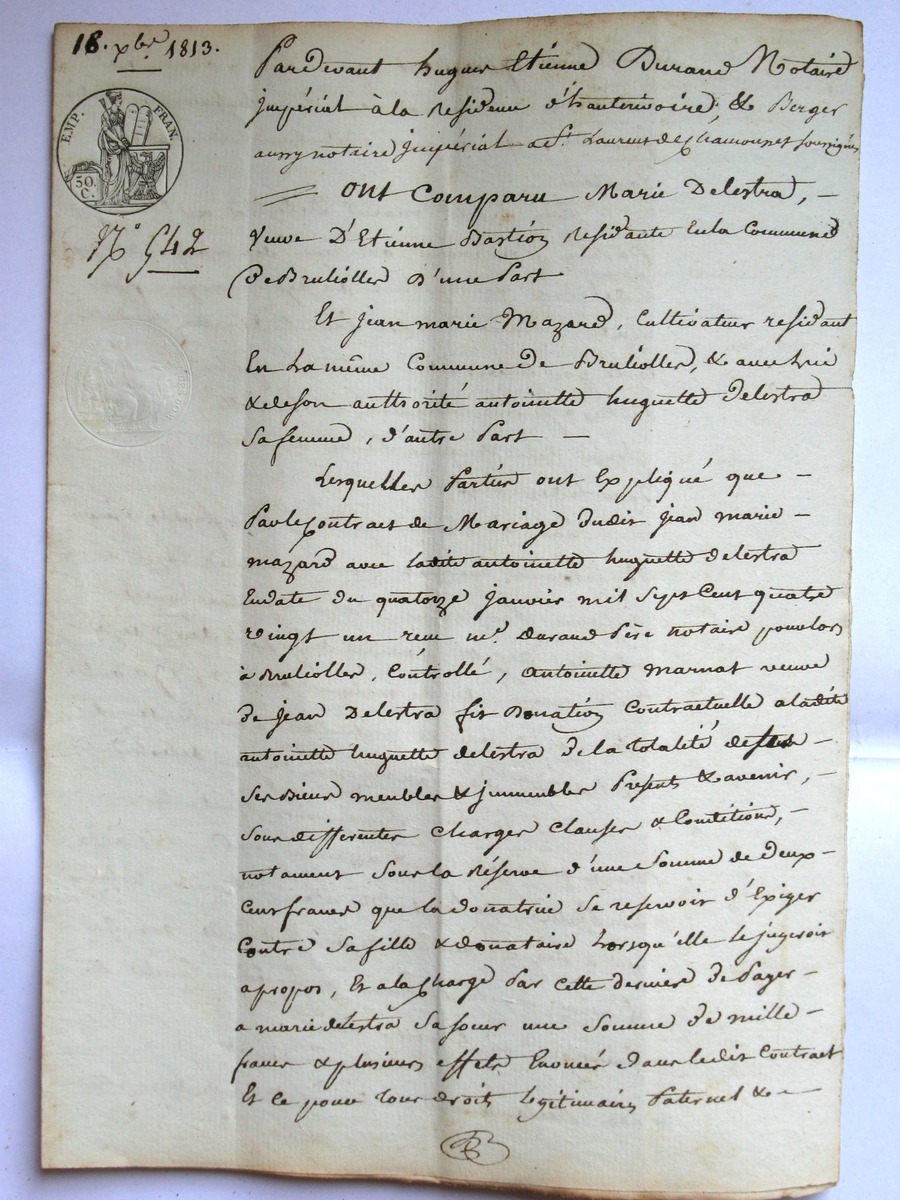 18. xbre 1813.
EMP. FRAN.
50.
C.
N° 542
Pardevant hugues Etienne Durand Notaire
jmpérial à la residence d'hauterivoire, & Berger
aussy notaire jmpérial a St. Laurent de Chamousset soussignés
ONT Comparu Marie Delestra, –
veuve D'Etienne Bastion residante En la Commune
De Brulioller D'une Part
Et jean marie Mazard, Cultivateur residant
En La même Commune De Brulioller, & avec lui
& de son authorité antoinette huguette Delestra
sa femme, d'autre Part –
Lesquelles Parties ont Expliqué que –
Par le Contract de Mariage dudit jean marie –
mazard avec ladite antoinette huguette delestra
En date du quatorze janvier mil sept Cent quatre
vingt un reçu me. durand Père notaire pour lors
à Brulioller, Contrôllé, antoinette marnat veuve
de jean Delestra fit Donation Contractuelle a ladite
antoinette huguette delestra de la totalité de
ses Biens meubles & jmmeubles Présents & avenir, –
sous differentes Charges Clauses & Conditions, –
notament sous la Réserve d'une Somme de deux
Cent francs que la donatrice se reservoit d'Exiger
Contre sa fille & donataire Lorsqu'elle le jugeroit
apropos, Et a la Charge Par cette derniere de Payer –
a marie delestra sa soeur une Somme de mille –
francs & plusieurs effets Enoncés dans ledit Contract
Et ce pour tous droits Légitimaires Paternel & –